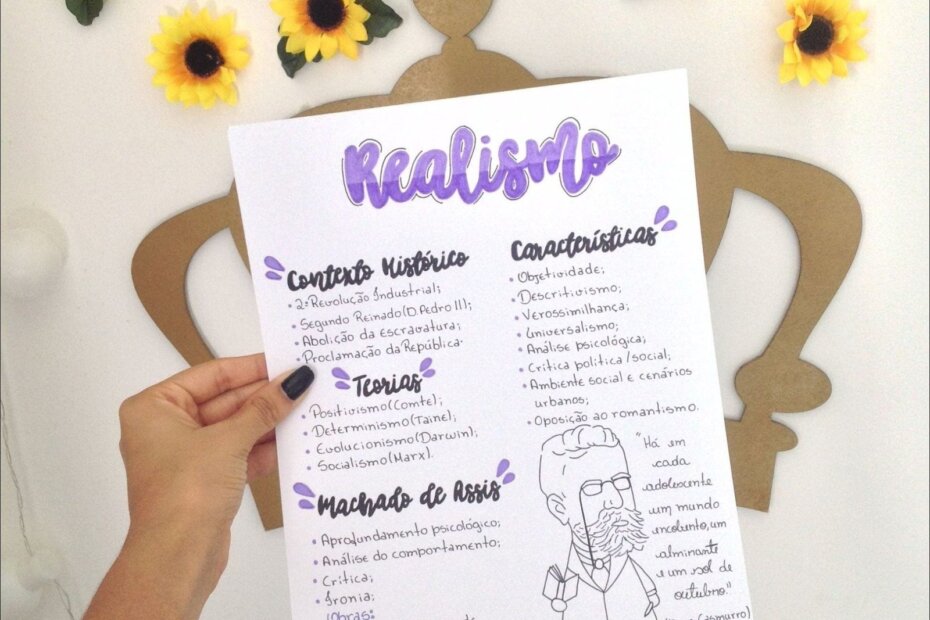 Realismo
Contexto Histórico
• 2ª Revolução Industrial;
• Segundo Reinado (D. Pedro II);
• Abolição da Escravatura;
• Proclamação da República.
Teorias
• Positivismo (Comte);
• Determinismo (Taine);
• Evolucionismo (Darwin);
• Socialismo (Marx).
Machado de Assis
• Aprofundamento psicológico;
• Análise do comportamento;
• Crítica;
• Ironia;
Obras:
Características
• Objetividade;
• Descritivismo;
• Verossimilhança;
• Universalismo;
• Análise psicológica;
• Crítica política/social;
• Ambiente social e cenários
urbanos;
• Oposição ao romantismo.
"Há em
cada
adolescente
um mundo
encoberto, um
alminante
e um sol de
outubro."